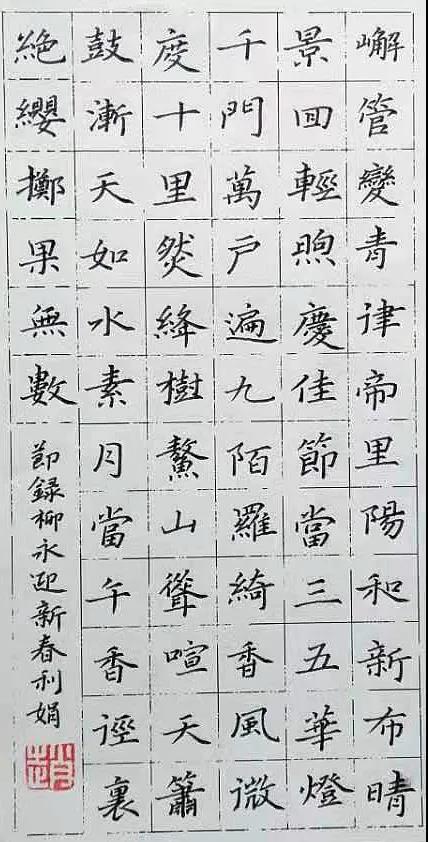 嶰管變青律帝里陽和新布晴
景回輕煦慶佳節當三五華燈
千門萬戶遍九陌羅綺香風微
度十里然絳樹鼇山聳喧天簫
鼓漸天如水素月當午香逕裏
絶纓擲果無數
節録柳永迎新春利娟